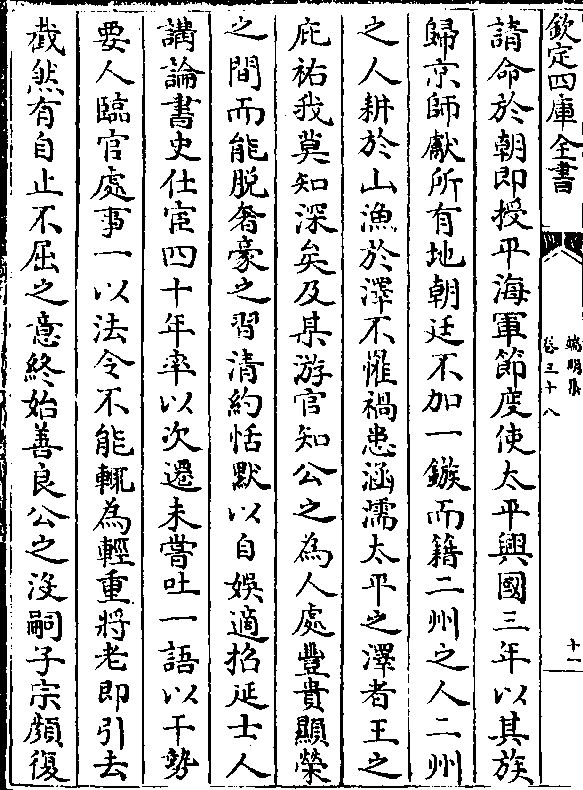 欽定四庫全書
端明集
卷三十八
十一
請命於朝即授平海軍節度使太平興國三年以其族
歸京師獻所有地朝廷不加一鏃而籍二州之人二州
之人耕於山漁於澤不懼禍患涵濡太平之澤者王之
庇祐我莫知深矣及某游官知公之為人處豐貴顯榮
之間而能脫奢豪之習清約恬默以自娛適招延士人
講論書史仕宦四十年率以次遷未嘗吐一語以干勢
要人臨官處事一以法令不能輒為輕重將老即引去
截然有自止不屈之意終始善良公之沒嗣子宗顏復